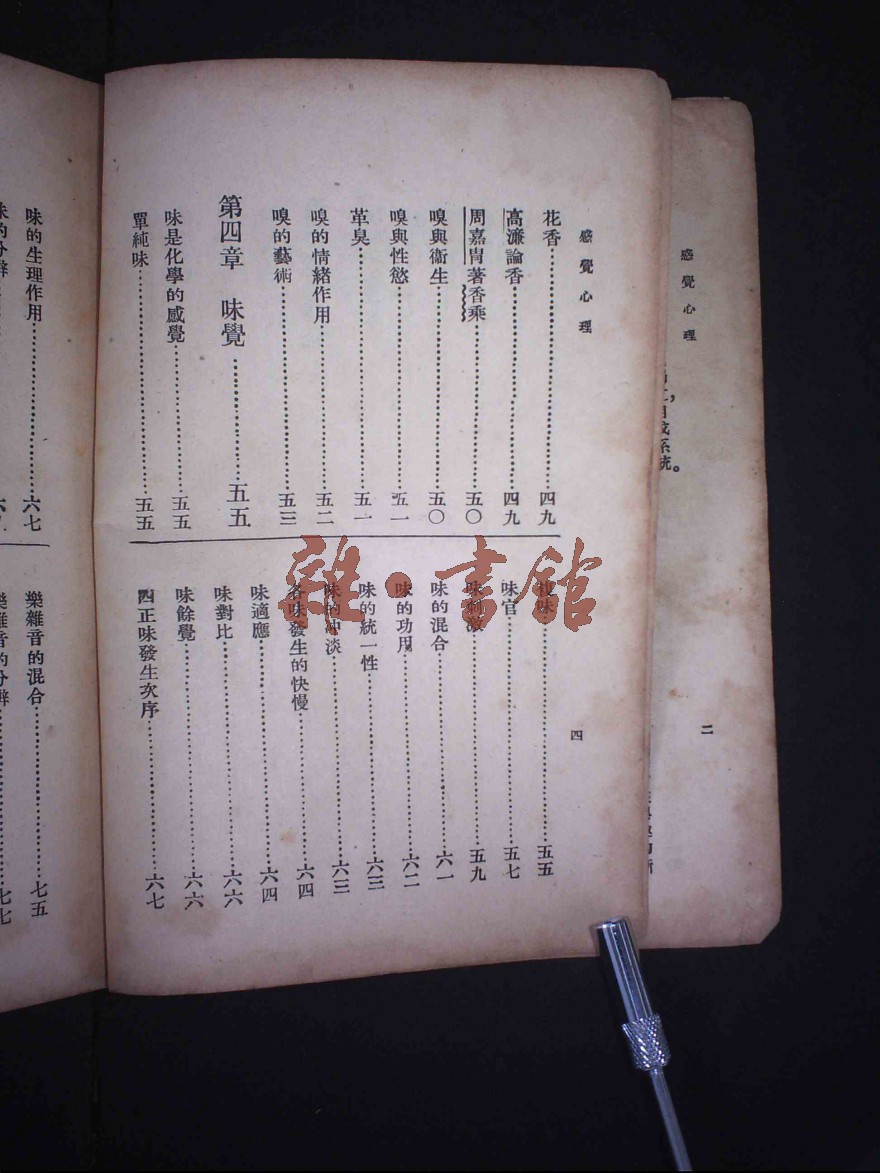 感覺心理
花香⋯⋯⋯⋯四九
高濂論香⋯⋯⋯⋯四九
周嘉冑著香乘⋯⋯⋯⋯五〇
嗅與衞生⋯⋯⋯⋯五〇
嗅與性慾⋯⋯⋯⋯五一
革臭⋯⋯⋯⋯五一
嗅的情緒作用⋯⋯⋯⋯五二
嗅的藝術⋯⋯⋯⋯五三
第四章 味覺⋯⋯⋯⋯五五
味是化學的感覺⋯⋯⋯⋯五五
單純味⋯⋯⋯⋯五五
複味⋯⋯⋯⋯五五
味官⋯⋯⋯⋯五七
味刺激⋯⋯⋯⋯五九
味的混合⋯⋯⋯⋯六一
味的功用⋯⋯⋯⋯六二
味的統一性⋯⋯⋯⋯六三
味的沖淡⋯⋯⋯⋯六三
各味發生的快慢⋯⋯⋯⋯六四
味適應⋯⋯⋯⋯六四
味對比⋯⋯⋯⋯六六
味餘覺⋯⋯⋯⋯六六
四正味發生次序⋯⋯⋯⋯六七
四
味的生理作用⋯⋯⋯⋯六七
樂雜音的混合⋯⋯⋯⋯七五
樂雜音的分辨⋯⋯⋯⋯七七
感覺心理
系統。
二
雜·書館